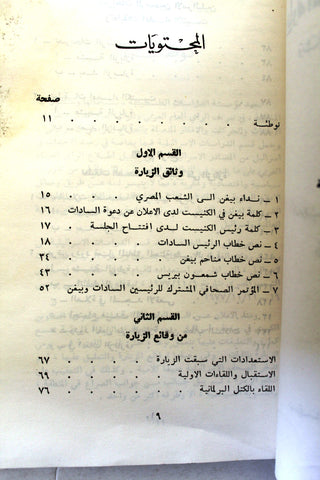 المحتويات
صفحة
توطئة . . . . . . . . . ١١
القسم الاول
وثائق الزيارة
١ – نداء بيغن الى الشعب المصري . . . ١٥
٢ – كلمة بيغن في الكنيست لدى الاعلان عن دعوة السادات ١٦
٣ – كلمة رئيس الكنيست لدى افتتاح الجلسة . ١٧
٤ – نص خطاب الرئيس السادات . . . ١٨
٥ – نص خطاب مناحم بيغن . . . . ٣٤
٦ – نص خطاب شمعون بيريس . . . ٤٣
٧ – المؤتمر الصحافي المشترك للرئيسين السادات وبيغن ٥٢
القسم الثاني
من وقائع الزيارة
الاستعدادات التي سبقت الزيارة . . . . ٦٧
الاستقبال واللقاءات الاولية . . . . ٦٩
اللقاء بالكتل البرلمانية . . . . . ٧٦
٩